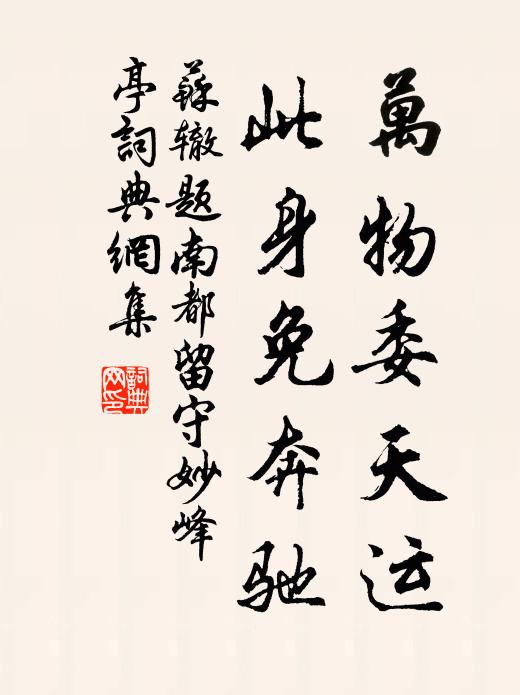 萬物委天运
此身免奔驰
蘇辙题南都留守妙峰
亭詞典網集
詞典网印